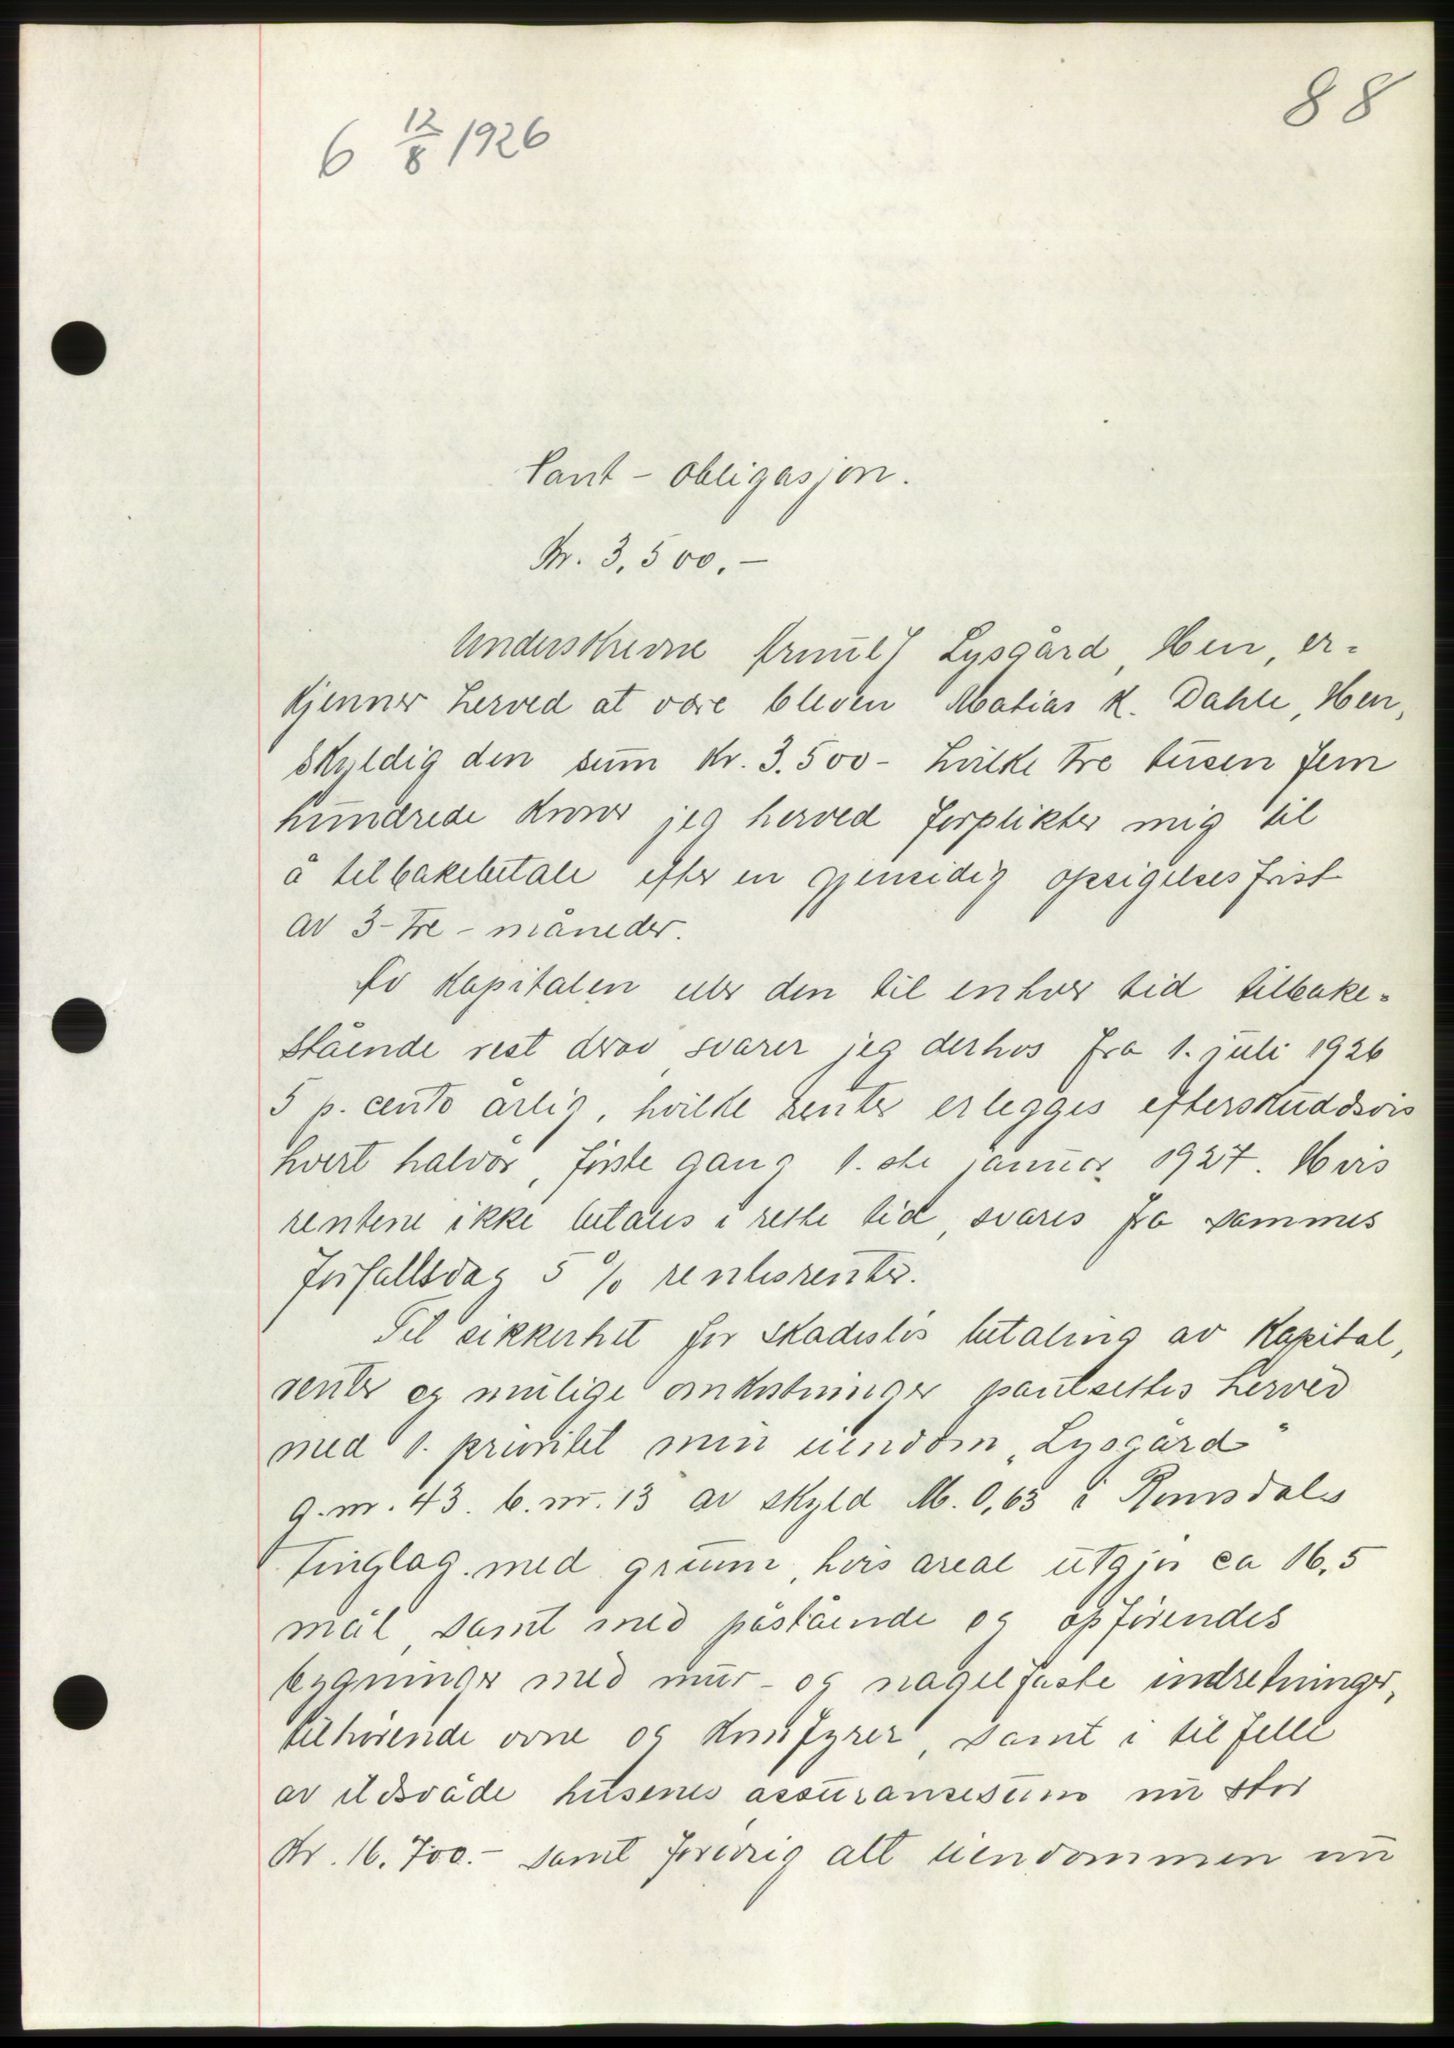 88
6 12/8 1926
Pant - obligasjon.
Kr. 3.500.-
Underskrevne Lysgård, Hen, er-
kjenner herved at være bleven Matias K. Dahle, Hen,
skyldig den sum kr. 3.500- hvilke tre tusen fem
hundrede kroner jeg herved forplikter mig til
å tilbakebetale efter en gjensidig opsigelsesfrist
av 3-tre-måneder.
Av kapitalen eller den til enhver tid tilbake-
stående rest derav, svarer jeg derhos fra 1. juli 1926
5 p. cento årlig, hvilke renter erlegges efterskuddsvis
hvert halvår, første gang 1.ste januar 1927. Hvis
rentene ikke betales i rette tid, svares fra sammes
forfallsdag 5 % rentesrenter.
Til sikkerhet for skadesløs betaling av kapital,
renter og mulige omkostninger pantsettes herved
med 1. prioritet min eiendom „Lysgård"
g.nr. 43. b.nr. 13 av skyld M. 0,63 i Romsdals
tinglag. med grunn, hvis areal utgjør ca 16,5
mål, samt med påstående og opførendes
bygninger med mur- og nagelfaste indretninger,
tilhørende ovne og komfyrer, samt i tilfelle
av ildsvåde husenes assuransesum nu stor
Kr. 16.700.- samt forøvrig alt eiendommen nu